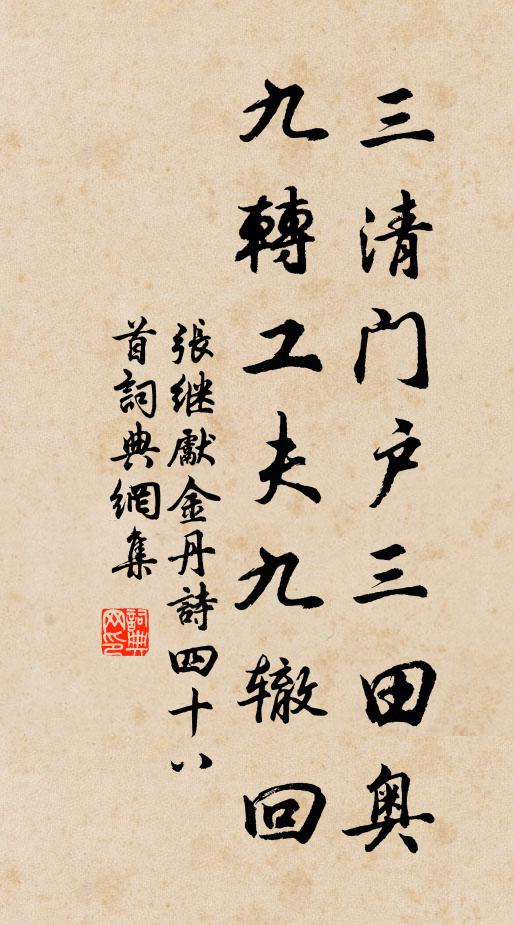 三清门户三田奥
九轉工夫九辙回
張继獻金丹詩四十八
首詞典網集
詞典
网印